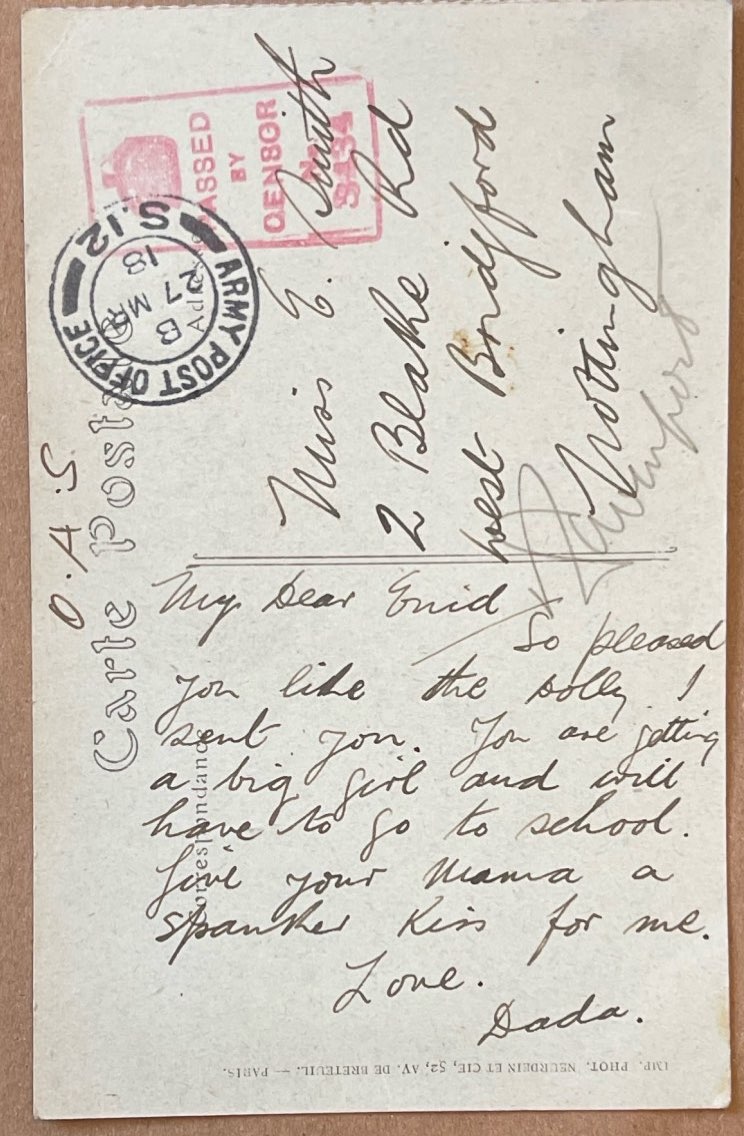 O.A.S.
Carte Postale
Correspondance
Adresse
PASSED
BY
CENSOR
No
ARMY POST OFFICE
S.12
B
27 MR
18
Miss E. Smith
2 Blake Rd
West Bridgford
Nottingham
My Dear Enid
So pleased
you like the Dolly I
sent you. You are getting
a big girl and will
have to go to school.
Give your Mama a
spanker Kiss for me.
Love.
Dada.
IMP. PHOT. NEURDEIN ET CIE, 52, AV. DE BRETEUIL. — PARIS.